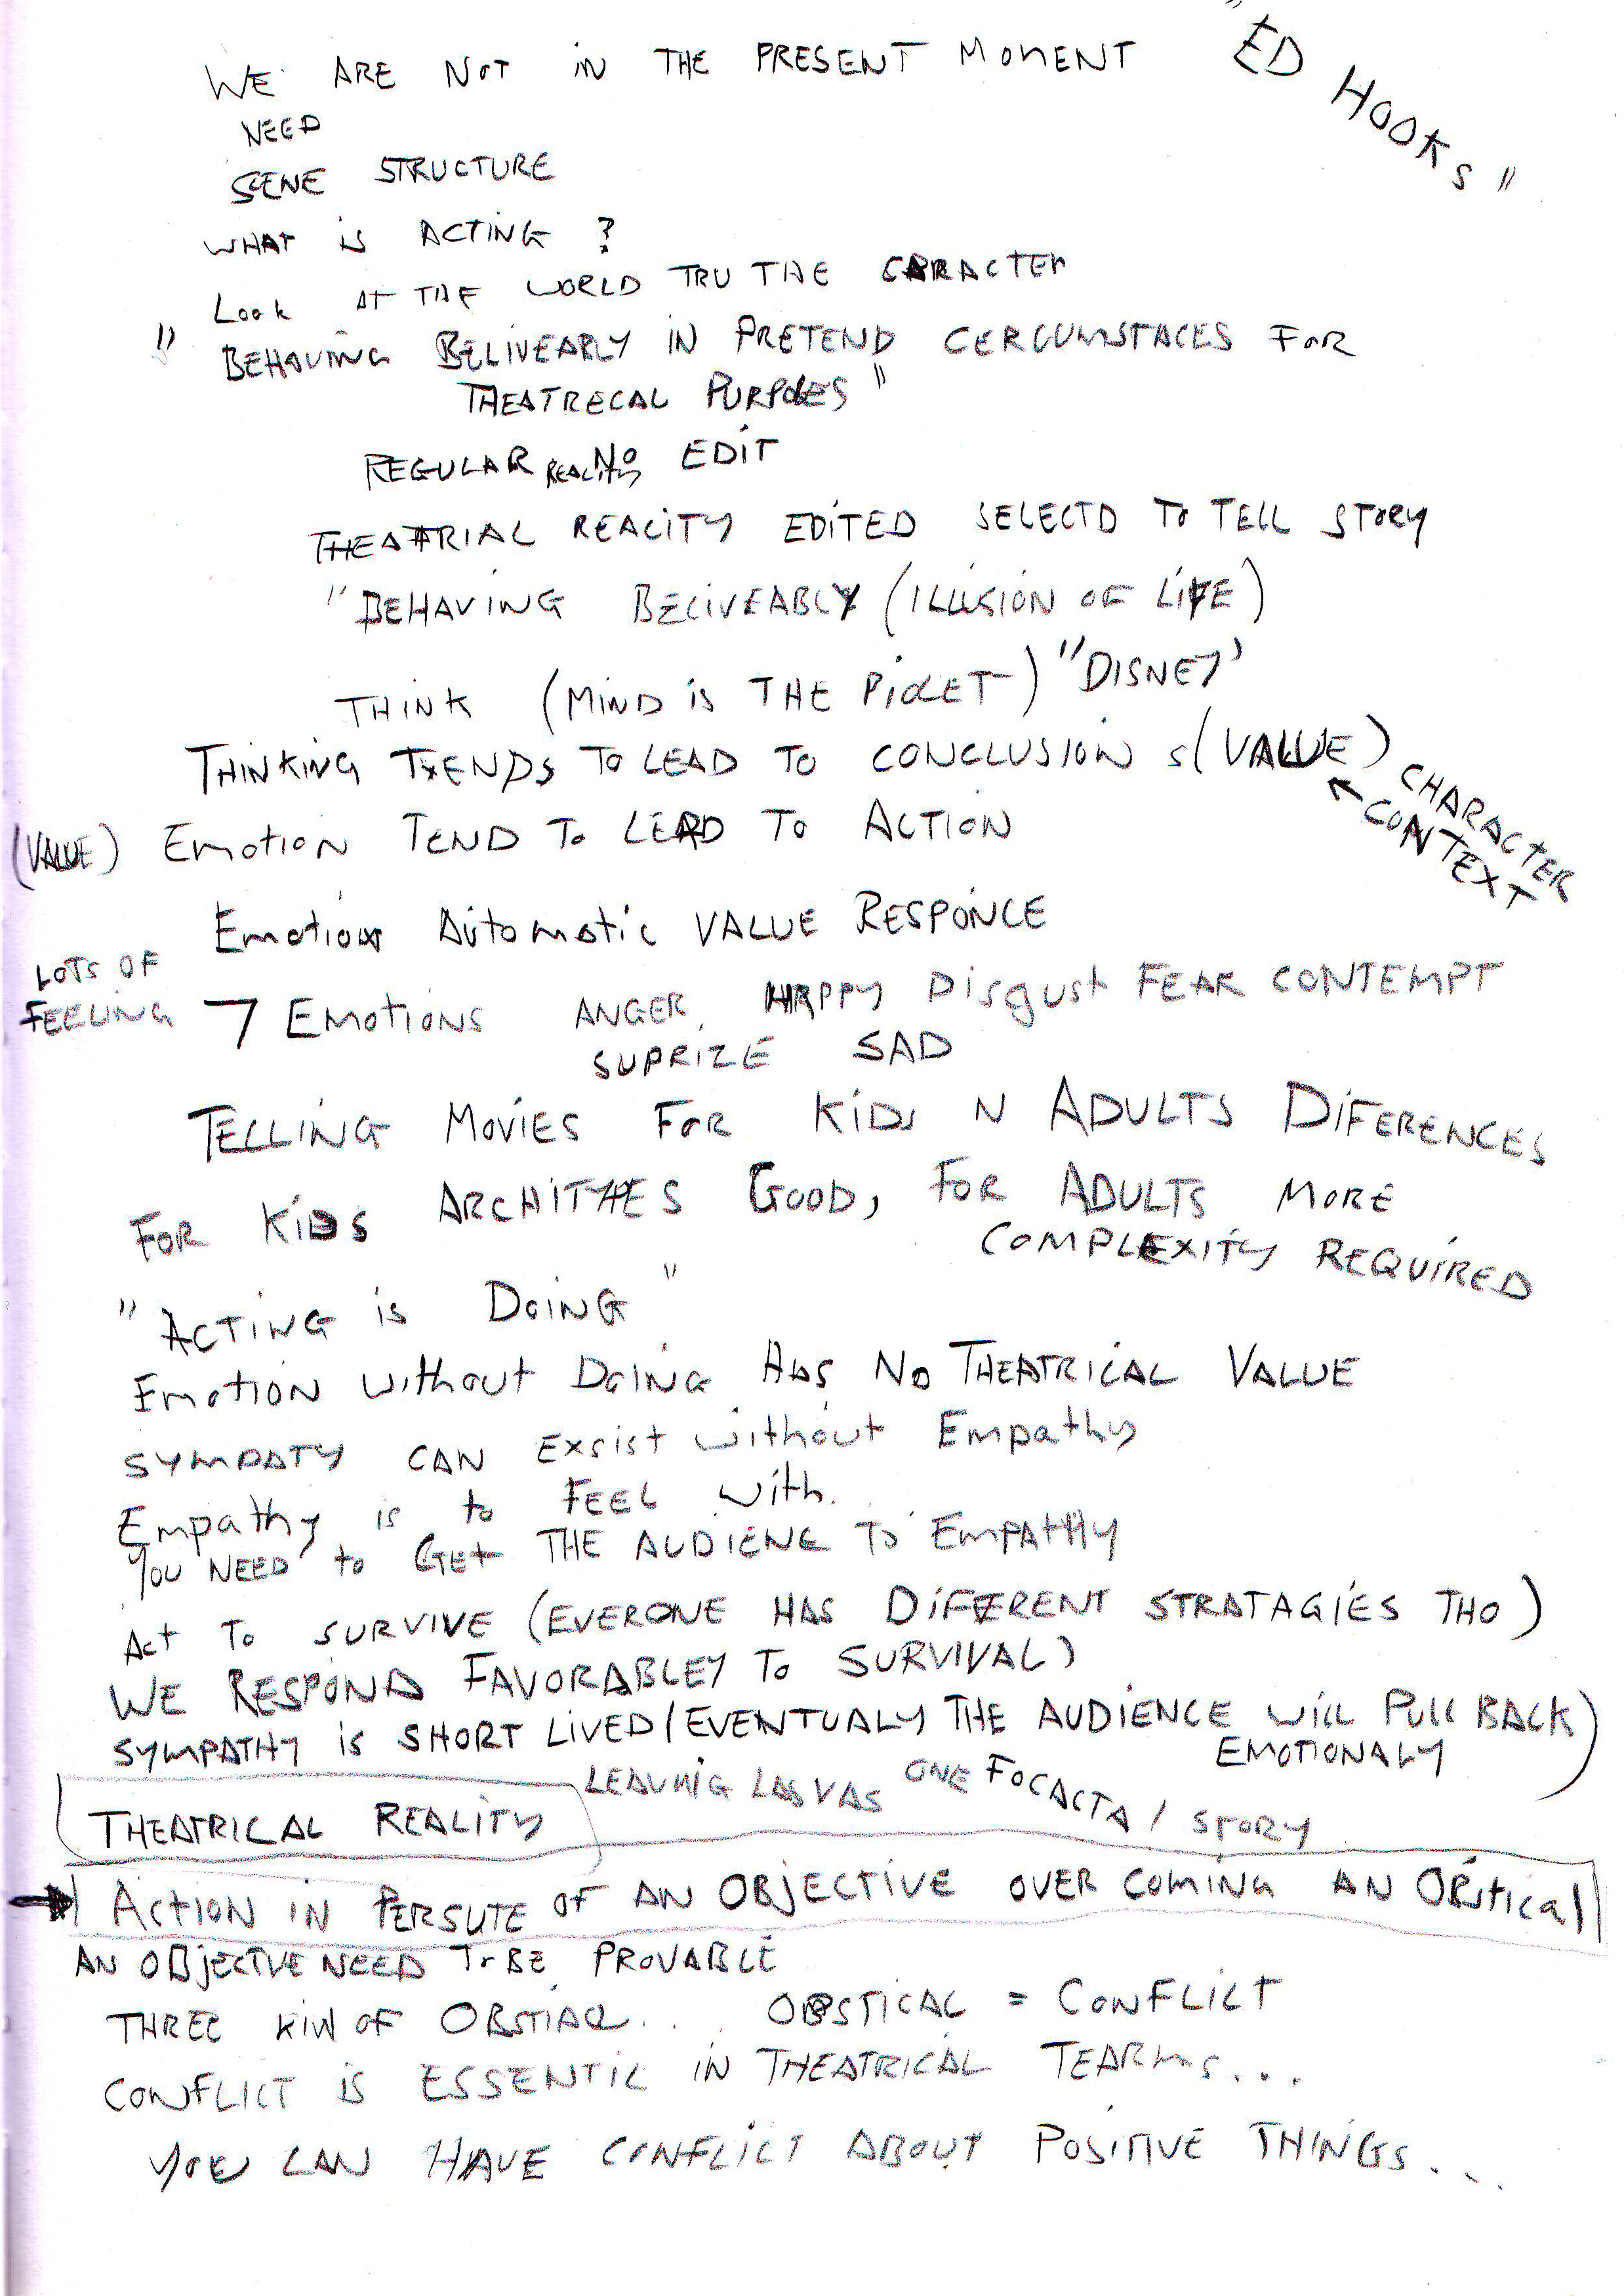 "ED HOOKS"
WE ARE NOT in THE PRESENT MOMENT
NEED
SCENE STRUCTURE
WHAT is ACTING ?
Look At THE WORLD TRU THE CARACTEr
" BEHAVING BELIVEABLY IN PRETEND CERCUMSTACES FOR
THEATRECAL PURPOLES"
REGULAR REALITY NO EDIT
THEATRIAL REALITY EDITED SELECTD TO TELL STORY
"BEHAVING BELIVEABLY (ILLUSION OF LIFE)
THINK (MIND is THE PILET) "DISNEY'
THINKING TENDS TO LEAD TO CONCLUSION s (VALUE)
CHARACTER
CONTEXT
(VALUE) EmotioN TEND To LEAD To ACTION
Emotion Automatic VALUE RESPONCE
LOTS OF
FEELING 7 EmotioNS ANGER, HAPPY Disgust FEAR CONTEMPT
SUPRIZE SAD
TELLING MOVIES FOR KIDS N ADULTS DIFERENCES
FOR KIDS ARCHITYPES GOOD, FOR ADULTS MORE
COMPLEXITY REQUIRED
"ACTING is DOING"
EmotioN without DOING HAS NO THEATRICAL VALUE
SYMPATY CAN EXSist without Empathy
Empathy is to FEEL with.
YOU NEED to GEt THE AUDIENC TO EmPATHY
Act To SURVIVE (EVERONE HAS DIFFERENT STRATAGIES THO)
WE RESPOND FAVORABLEY To SURVIVAL)
SYMPATHY is SHORT LIVED (EVENTUALY THE AUDIENCE WILL PULL BACK)
EMOTIONALY
LEAVNIG LAS VAS ONE FOCACTA / STORY
THEATRICAL REALITY
ACtION IN PERSUTE OF AN OBJECTIVE OVER COMING AN OBstical
AN OBJECTIVE NEED To BE PROVABLE
THREE KIN OF OBSTIACL... OBSTICAL = CONFLICT
CONFLICT is ESSENTIL IN THEATRICAL TEARMS...
YOU CAN HAVE CONFLICT ABOUT POSITIVE THINGS...